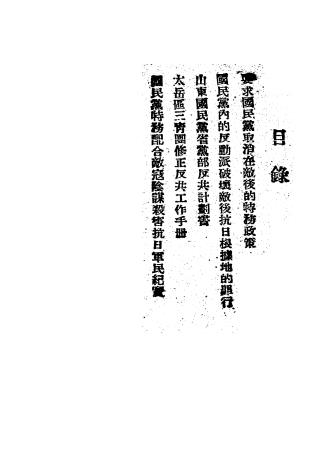 目錄
要求國民黨取消在敵後的特務政策
國民黨內的反動派破壞敵後抗日根據地的罪行
山東國民黨省黨部反共計劃書
太岳區三青團修正反共工作手冊
國民黨特務配合敵寇陰謀殺害抗日軍民紀實